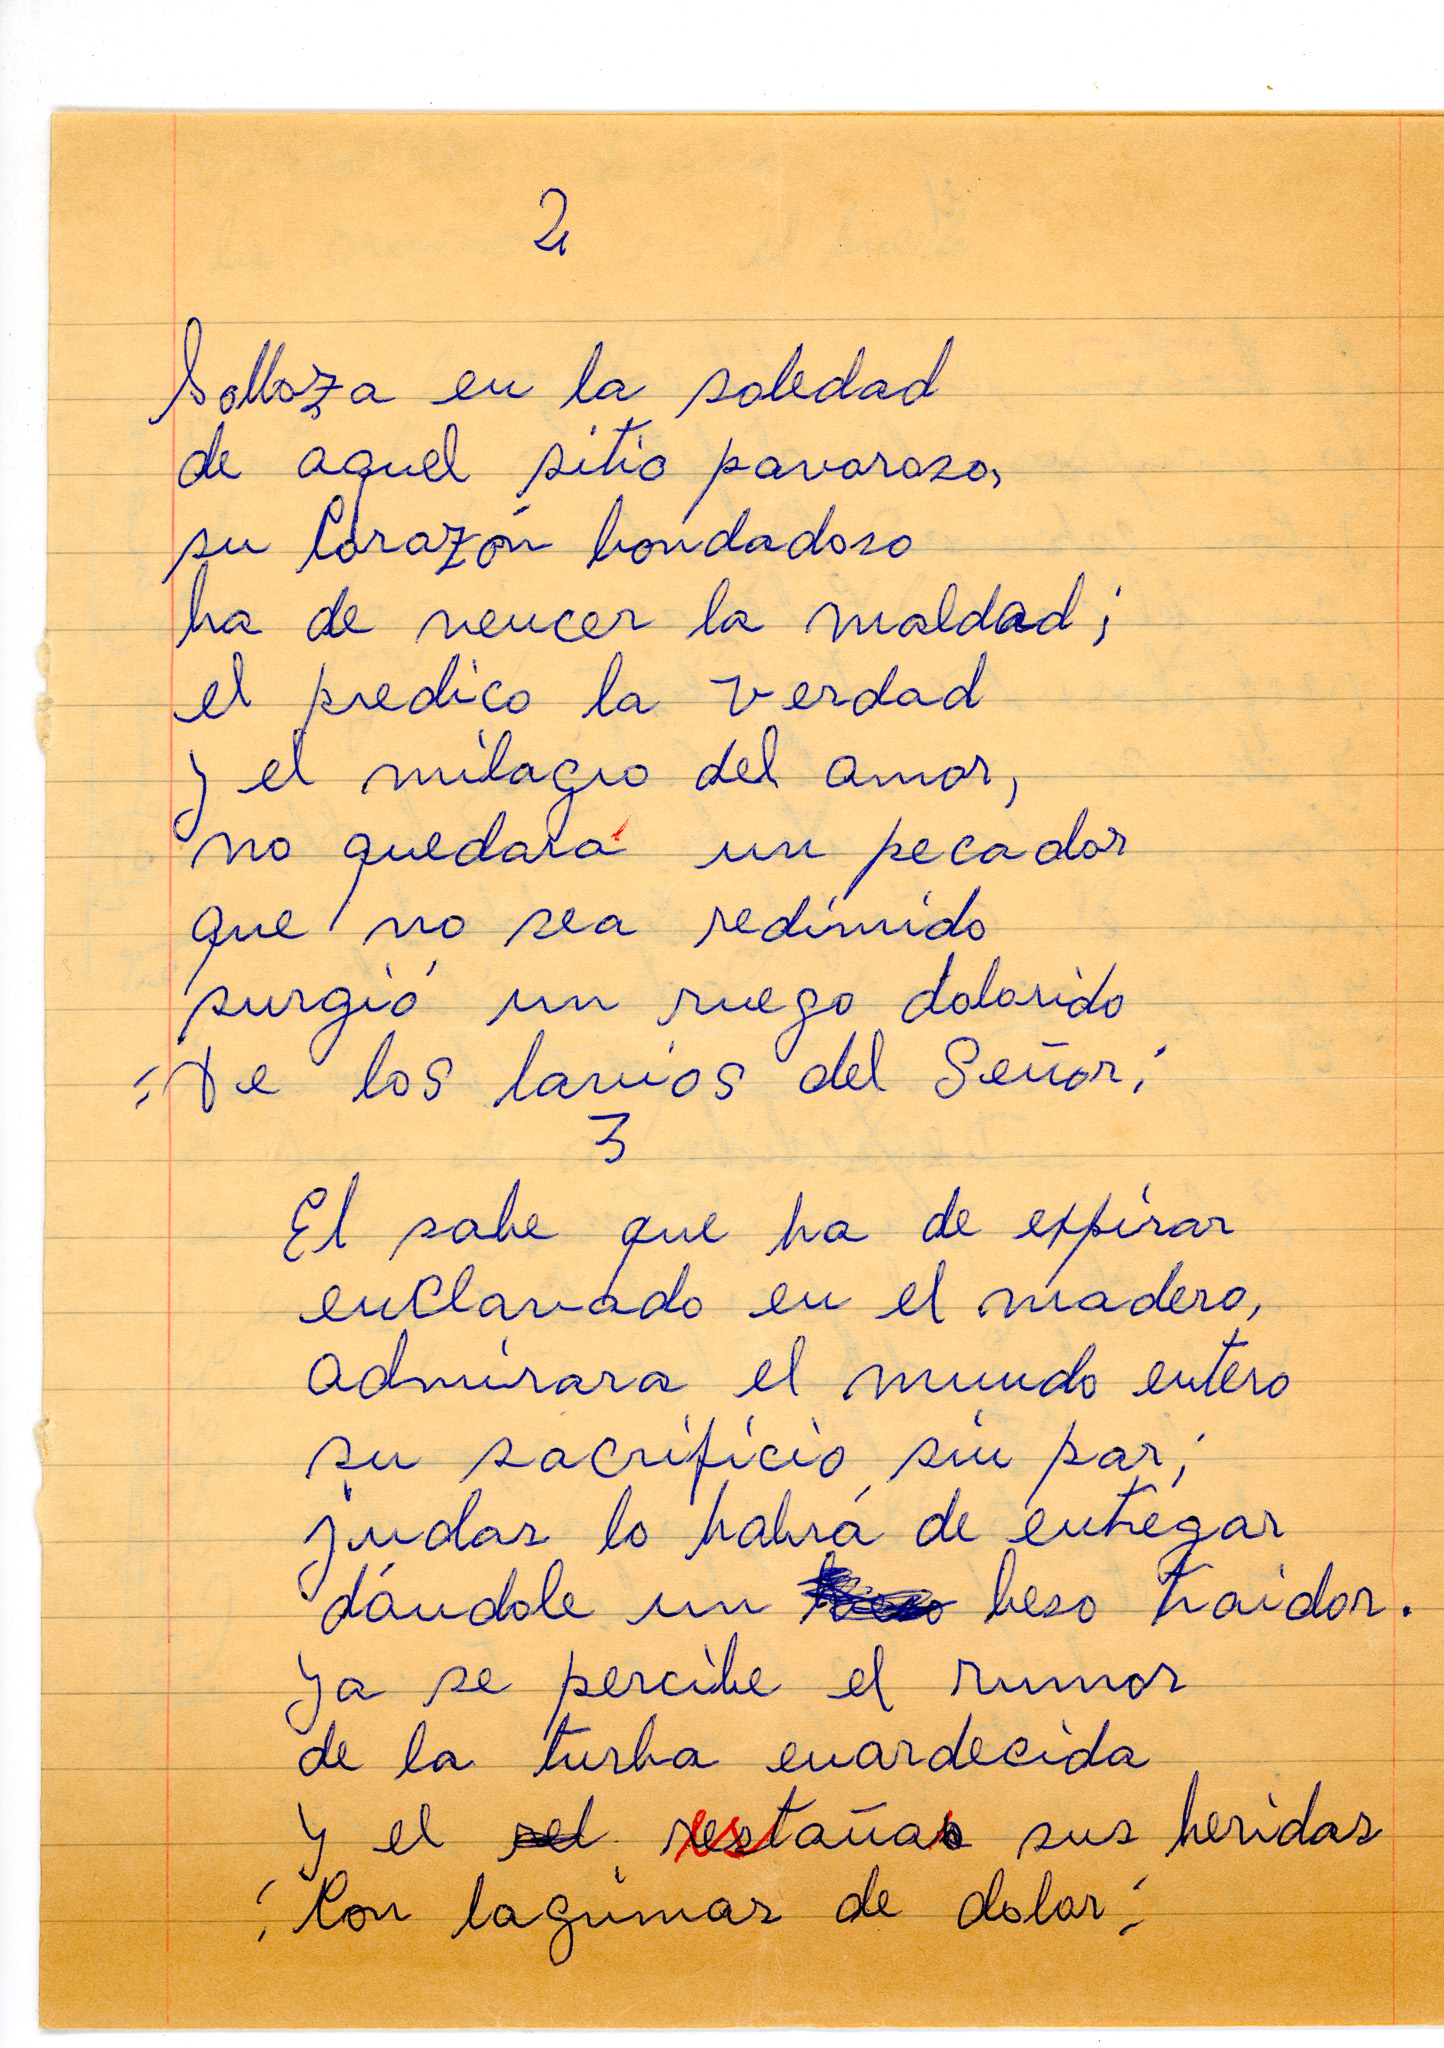 2
Solloza en la soledad
de aquel sitio pavoroso,
su Corazón bondadoso
ha de vencer la maldad;
el predico la verdad
y el milagro del amor,
no quedará un pecador
que no sea redimido
surgió un ruego dolorido
¡De los lavios del Señor;
3
El sabe que ha de expirar
enclavado en el madero,
admirara el mundo entero
su sacrificio sin par;
judas lo habrá de entregar
dándole un beso traidor.
ya se percibe el rumor
de la turba enardecida
y el restaña sus heridas
¡Con lagrimas de dolor!